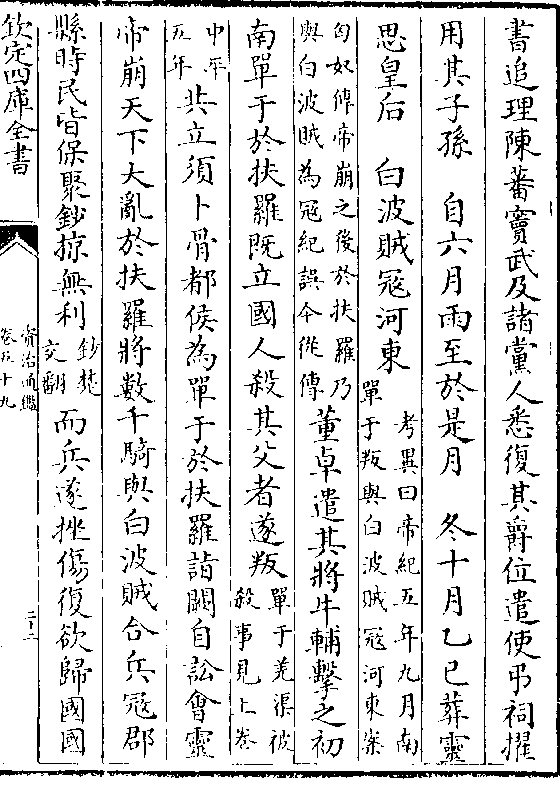 書追理陳蕃竇武及諸黨人悉復其爵位遣使弔祠擢
用其子孫　自六月雨至於是月　冬十月乙巳葬靈
思皇后　白波賊冦河東考異曰帝紀五年九月南單于叛與白波賊冦河東案
匈奴傳帝崩之後於扶羅乃與白波賊為冦紀誤今從傳董卓遣其將牛輔擊之初
南單于於扶羅既立國人殺其父者遂叛單于羌渠被殺事見上卷
中平五年共立須卜骨都侯為單于於扶羅詣闕自訟會靈
帝崩天下大亂於扶羅將數千騎與白波賊合兵冦郡
縣時民皆保聚鈔掠無利鈔楚交翻而兵遂挫傷復欲歸國國
欽定四庫全書
資治通鑑
卷五十九
二十二